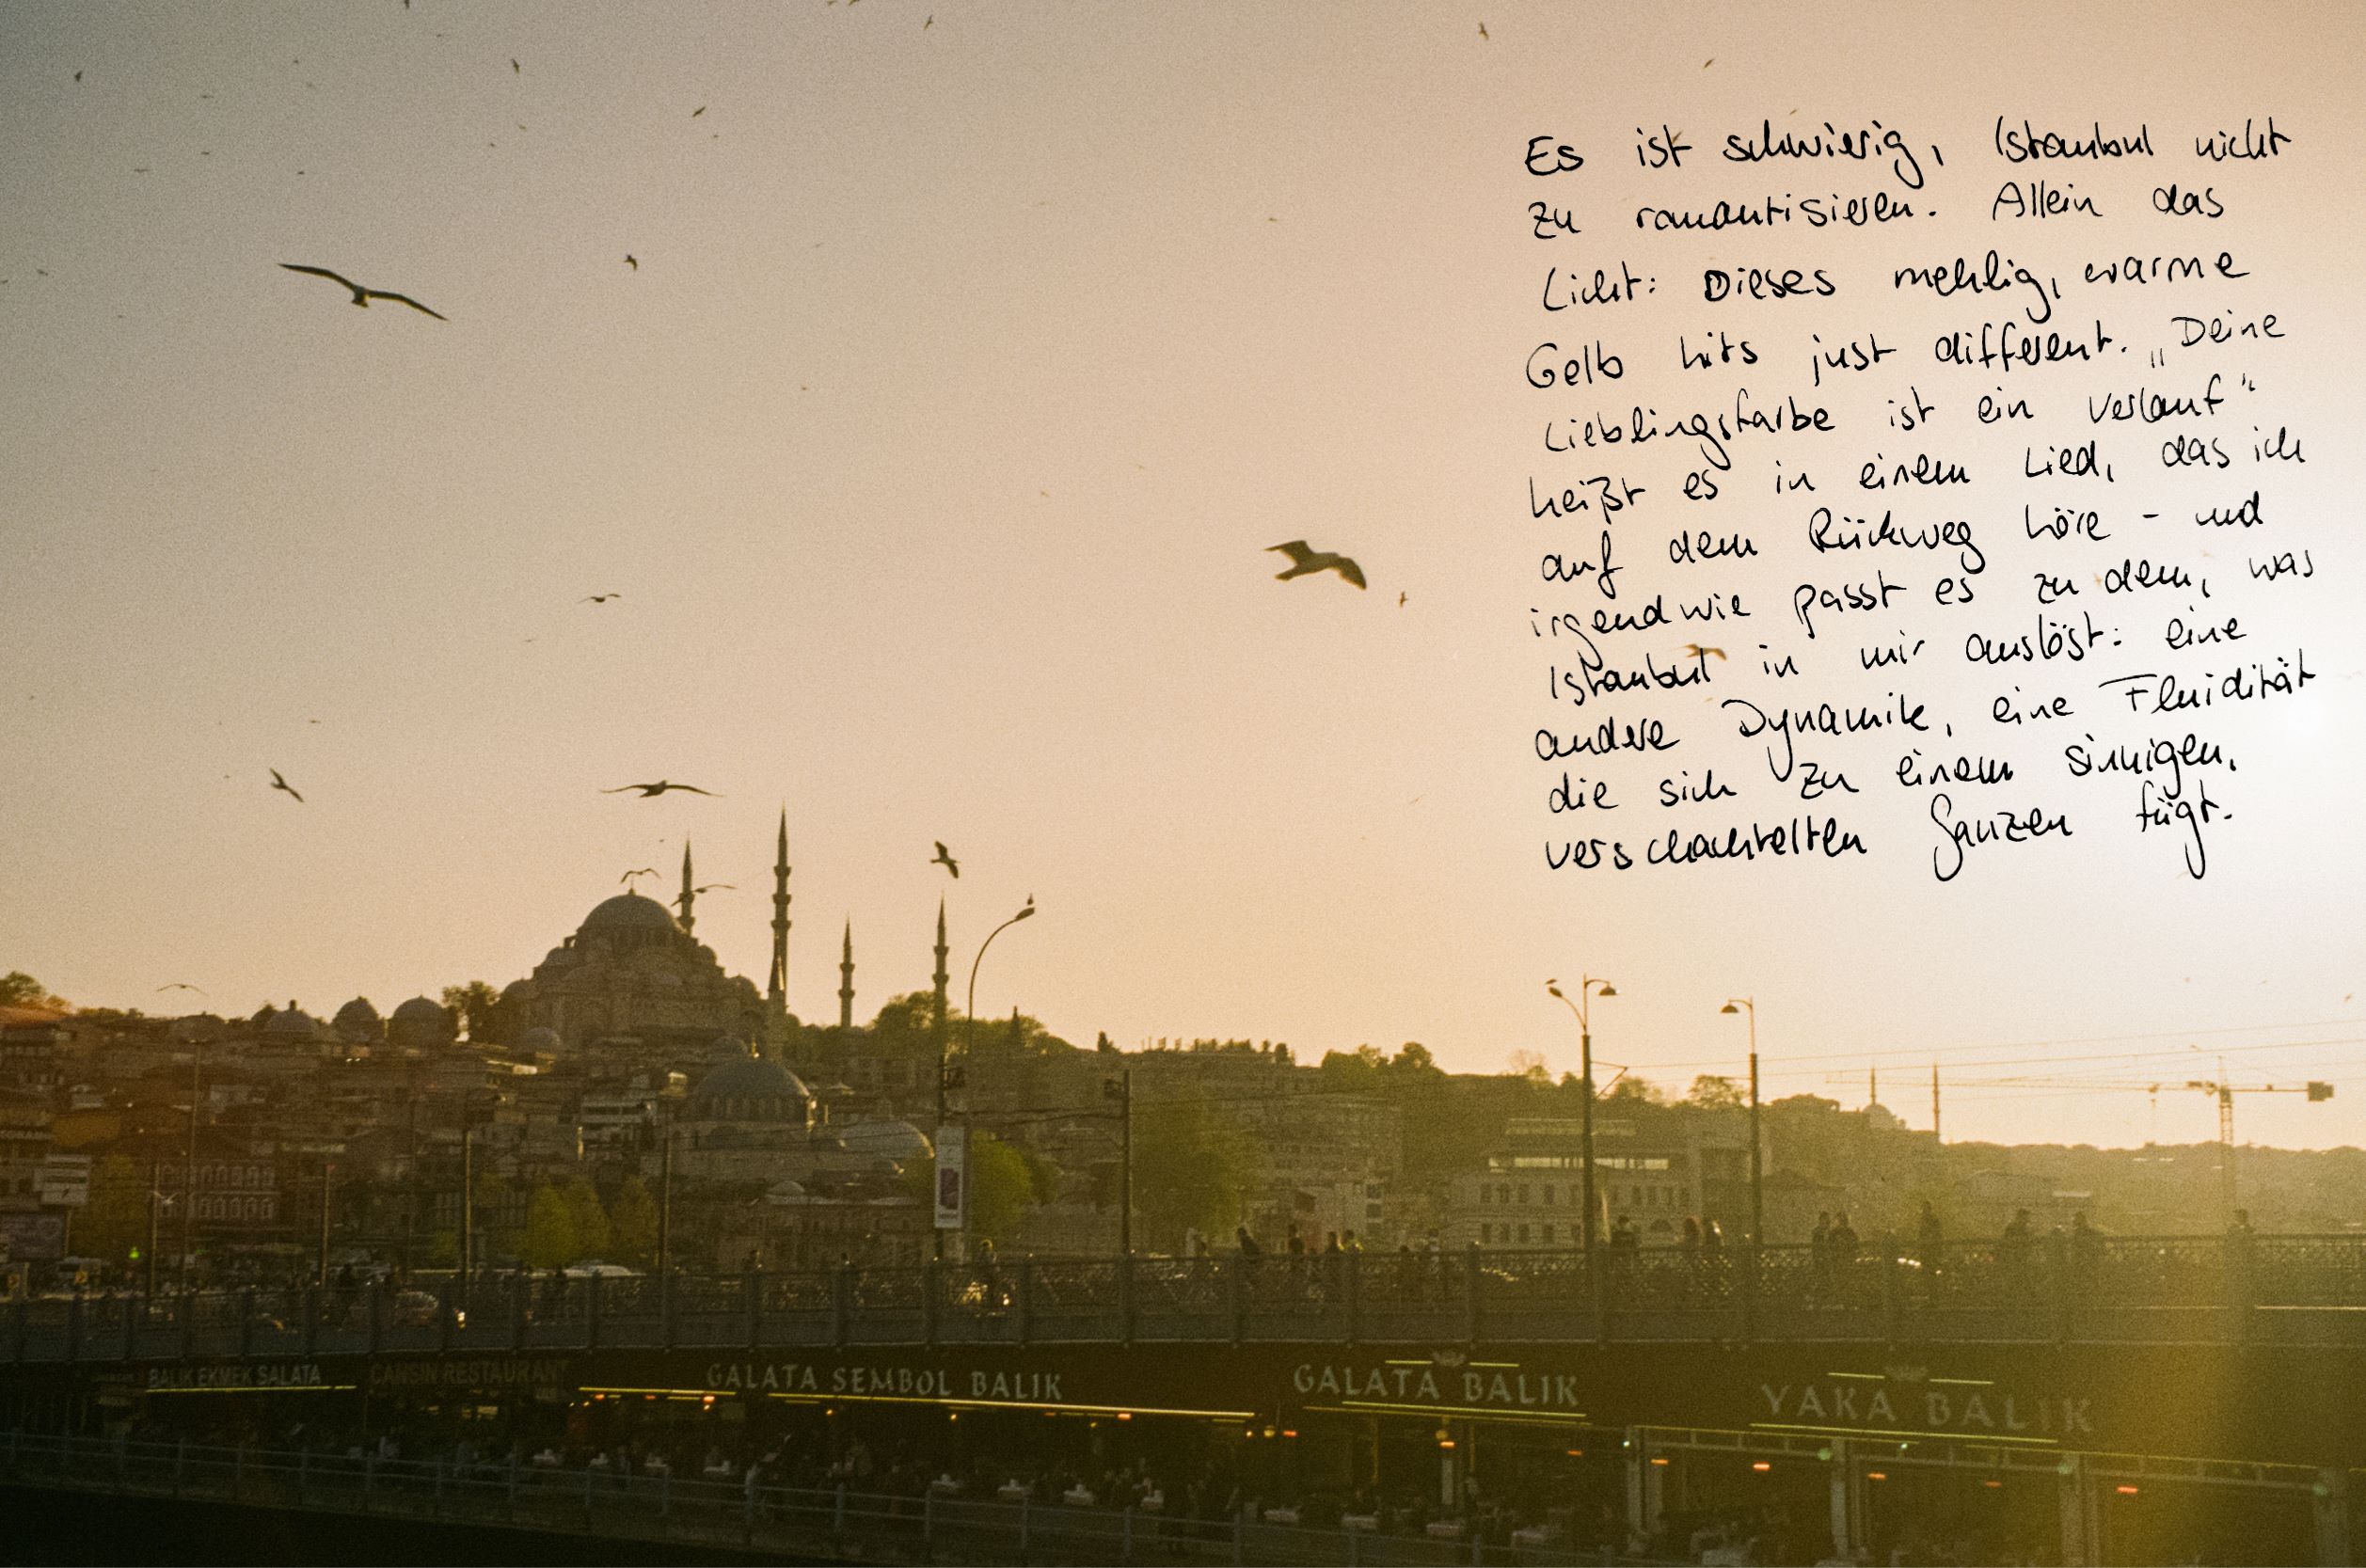 Es ist schwierig, Istanbul nicht
zu romantisieren. Allein das
Licht: Dieses mehlig, warme
Gelb hits just different. „Deine
Lieblingsfarbe ist ein Verlauf“
heißt es in einem Lied, das ich
auf dem Rückweg höre - und
irgendwie passt es zu dem, was
Istanbul in mir auslöst: eine
andere Dynamik, eine Fluidität
die sich zu einem sinnigen,
verschachtelten Ganzen fügt.
BALIK EKMEK SALATA
CANSIN RESTAURANT
GALATA SEMBOL BALIK
GALATA BALIK
YAKA BALIK